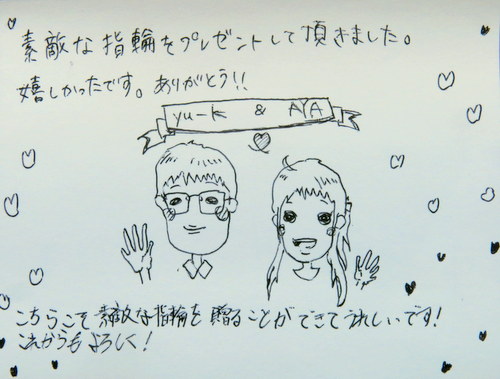 素敵な指輪をプレゼントして頂きました。
嬉しかったです。ありがとう!!
yu-k & AYA
こちらこそ素敵な指輪を贈ることができてうれしいです!
これからもよろしく!